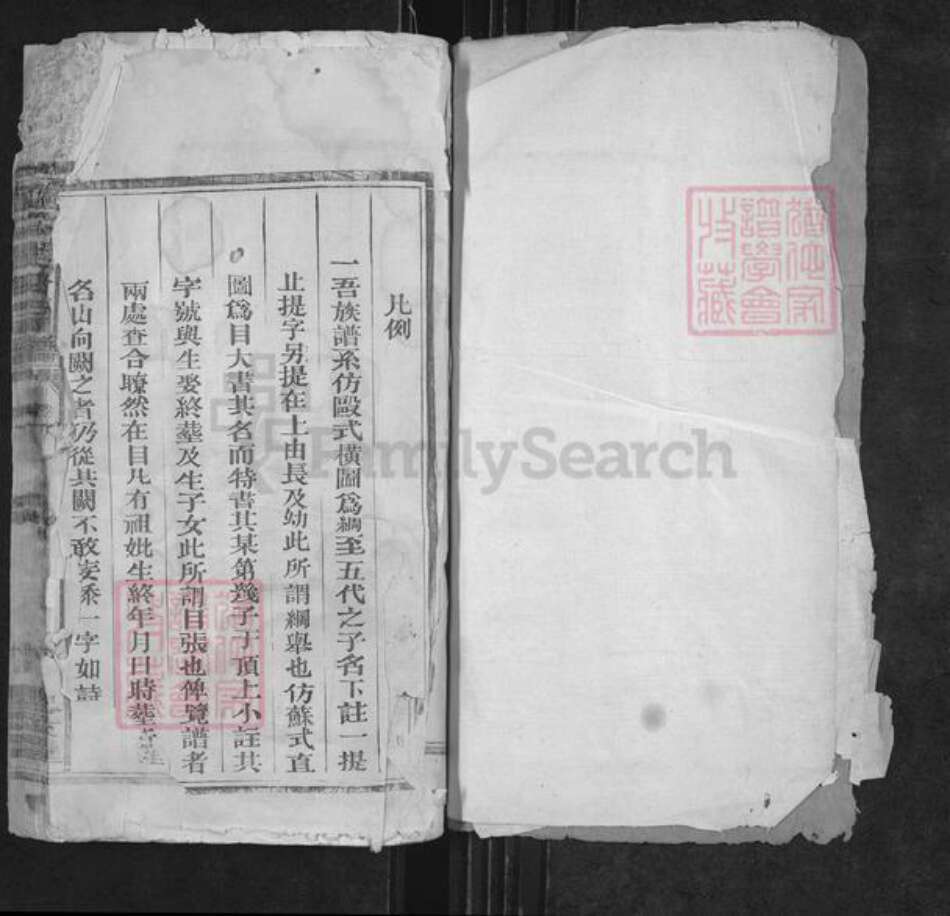 凡例
一吾族譜系仿歐式橫圖爲綱至五代之子名下註一提
止提字另提在上由長及幼此所謂綱舉也仿蘇式直
圖爲目大書其名而特書其某第幾子于頂上小註其
字號與生娶終塟及生子女此所謂目張也俾覽譜者
兩處查合瞭然在目凡有祖妣生終年月日時塟
名山向闕之者仍從其闕不敢妄添一字如詩
FamilySearch
譜學會
收藏